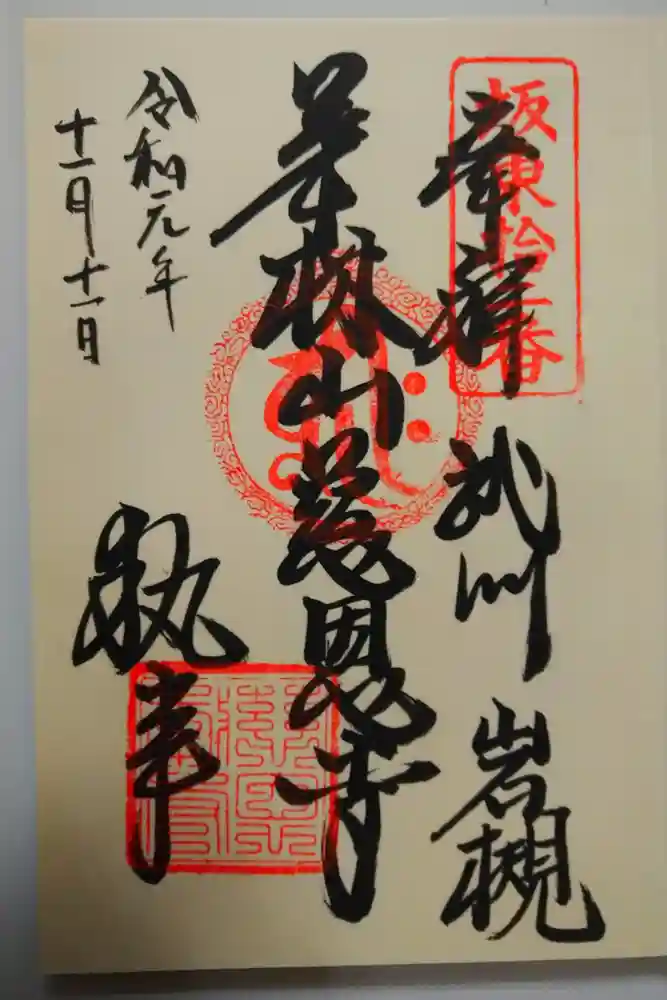 坂東拾二番
奉拝 武州 岩槻
華林山慈恩寺
執事
令和元年
十一月十一日